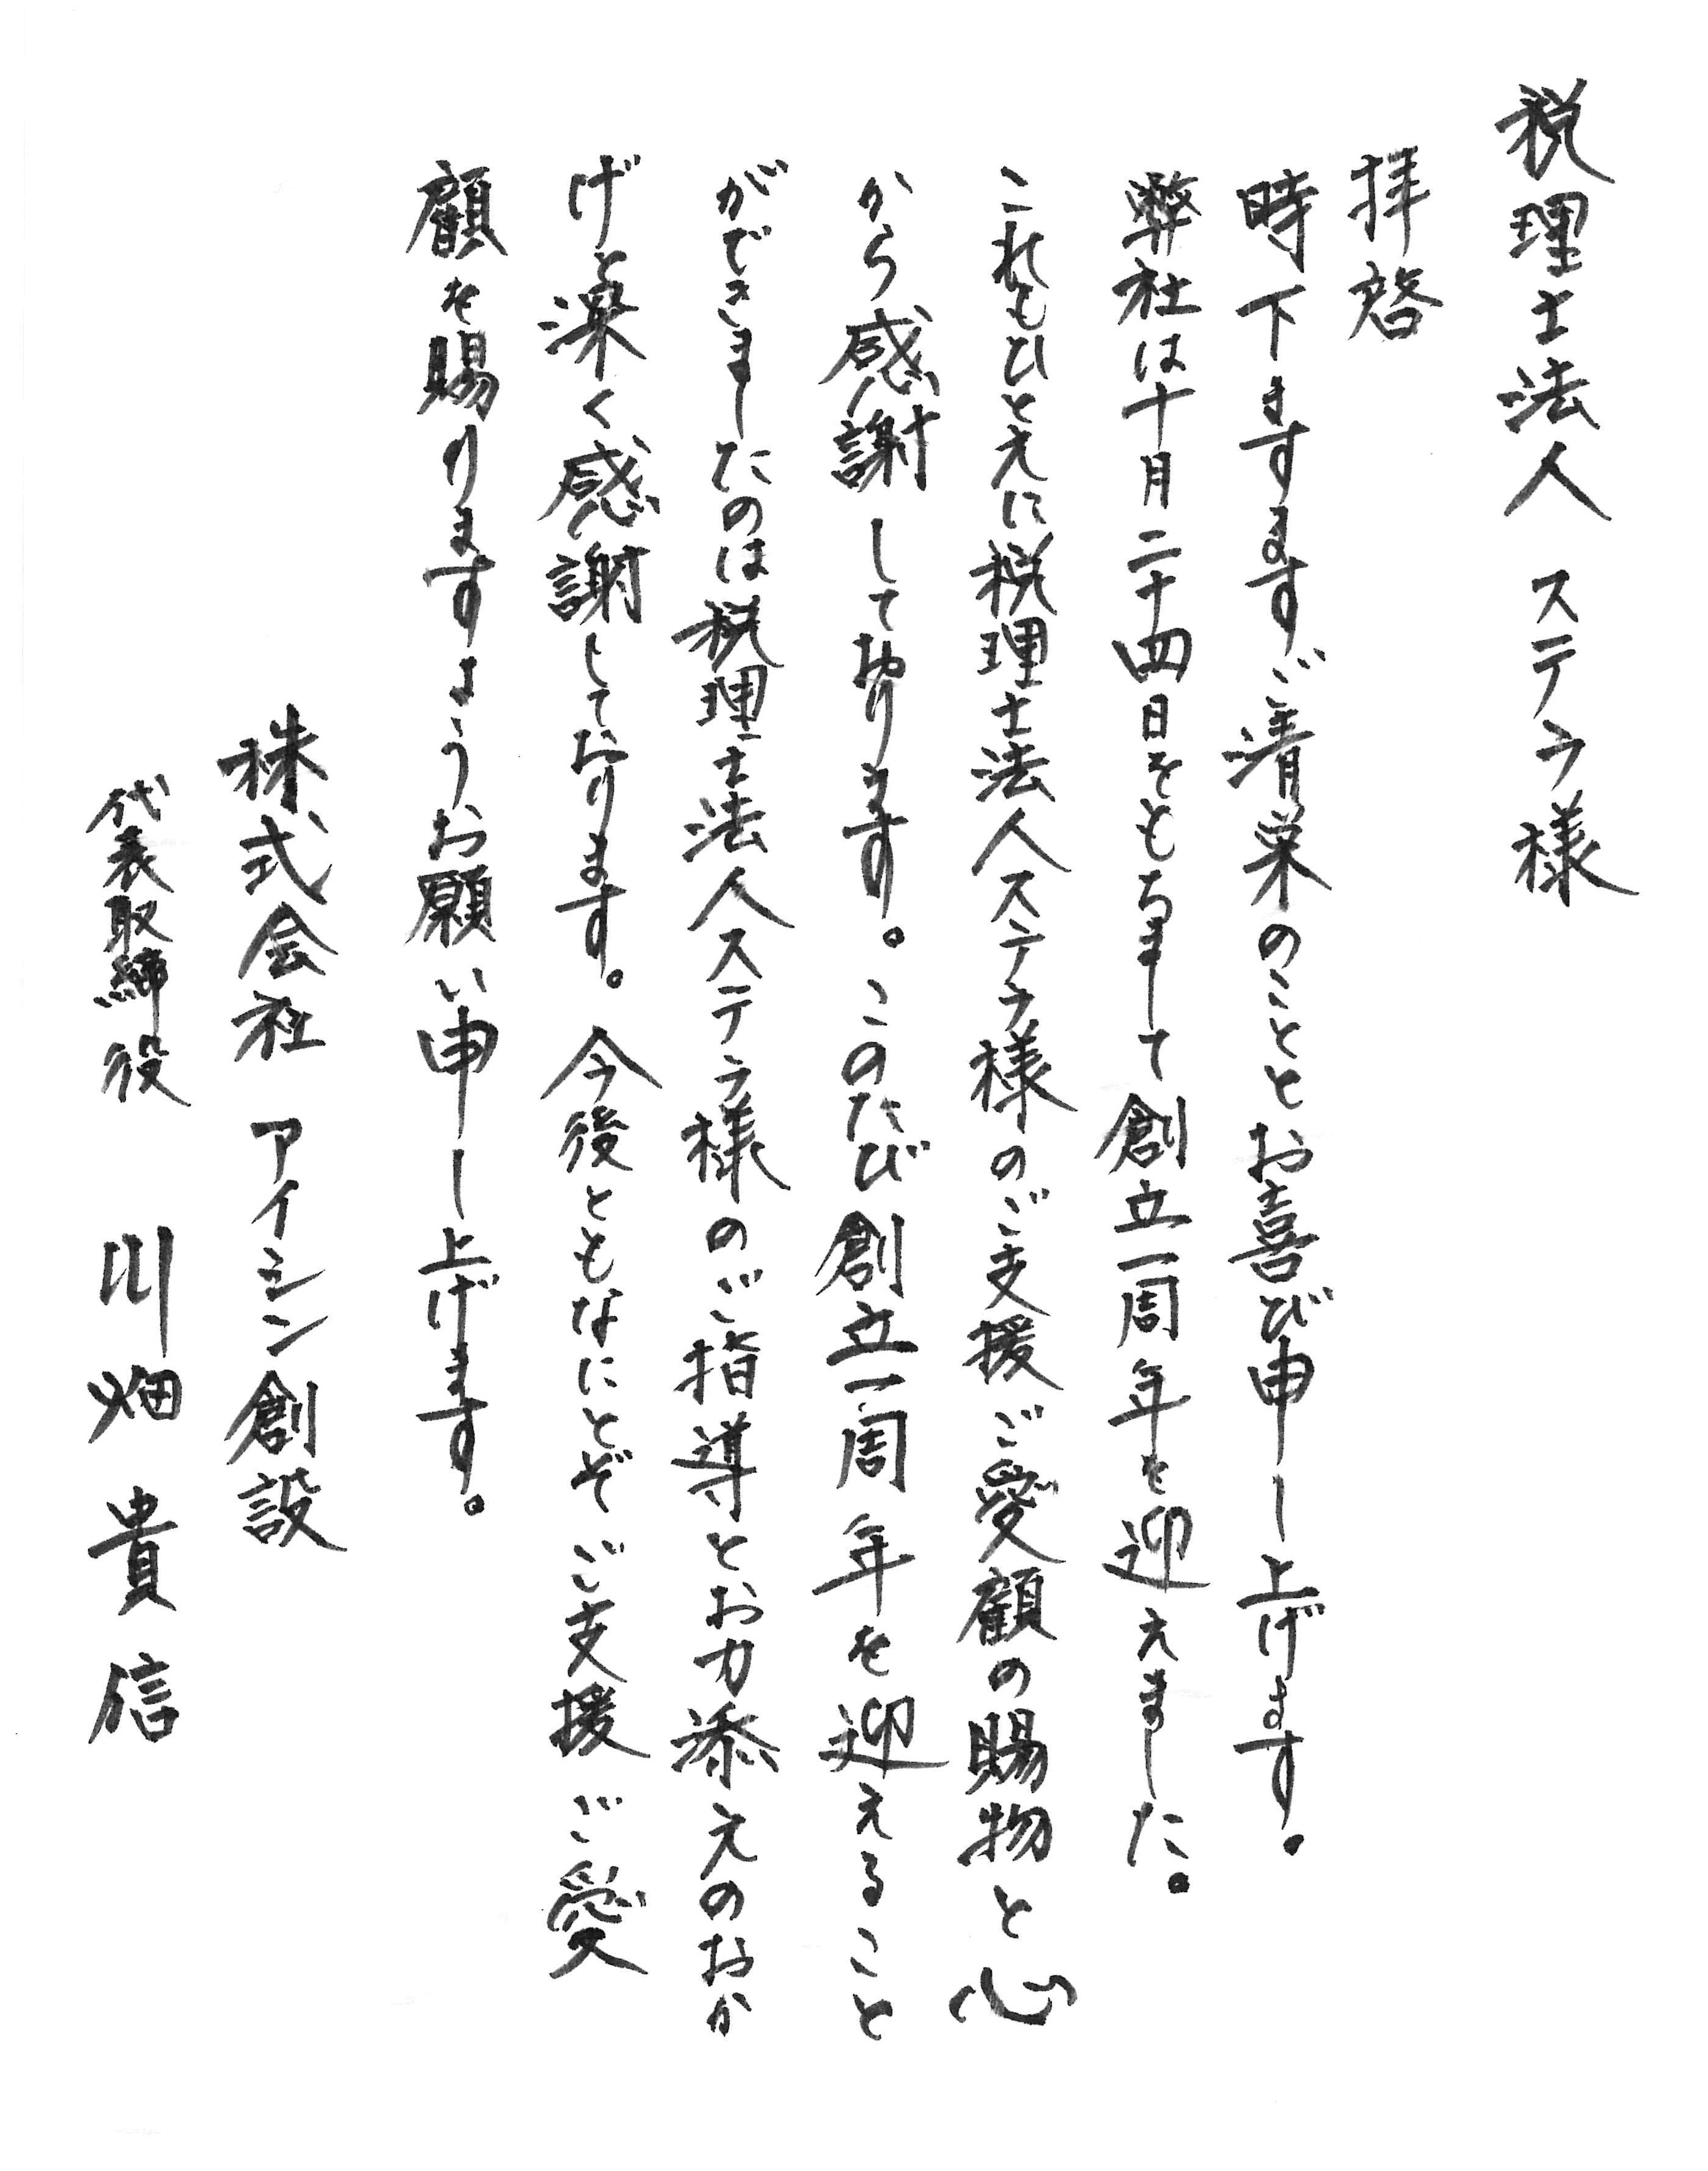 税理士法人 ステラ様
拝啓
時下ますますご清栄のこととお喜び申し上げます。
弊社は十月二十四日をもちまして創立一周年を迎えました。
これもひとえに税理士法人ステラ様のご支援ご愛顧の賜物と心
から感謝しております。このたび創立一周年を迎えること
ができましたのは税理士法人ステラ様のご指導とお力添えのおか
げと深く感謝しております。今後ともなにとぞご支援ご愛
顧を賜りますようお願い申し上げます。
株式会社 アイシン創設
代表取締役 川畑貴信